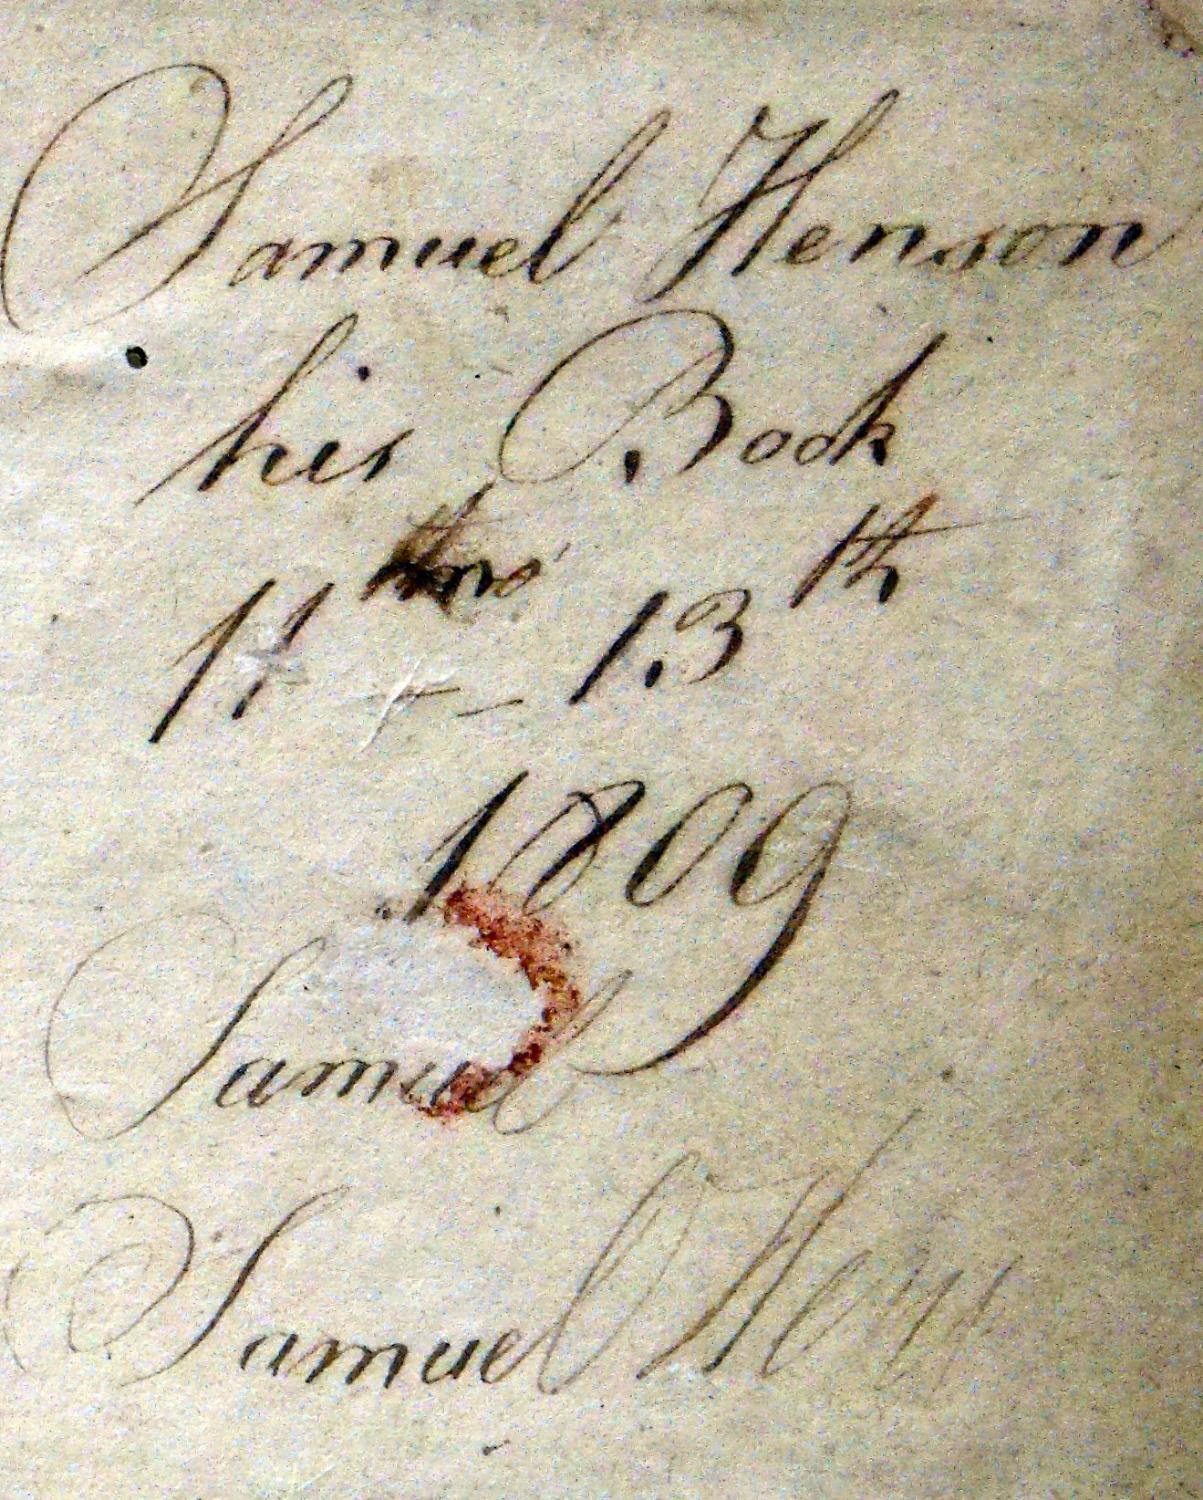 Samuel Henson
his Book
11 mo - 13th
1809
Samuel
Samuel Hen